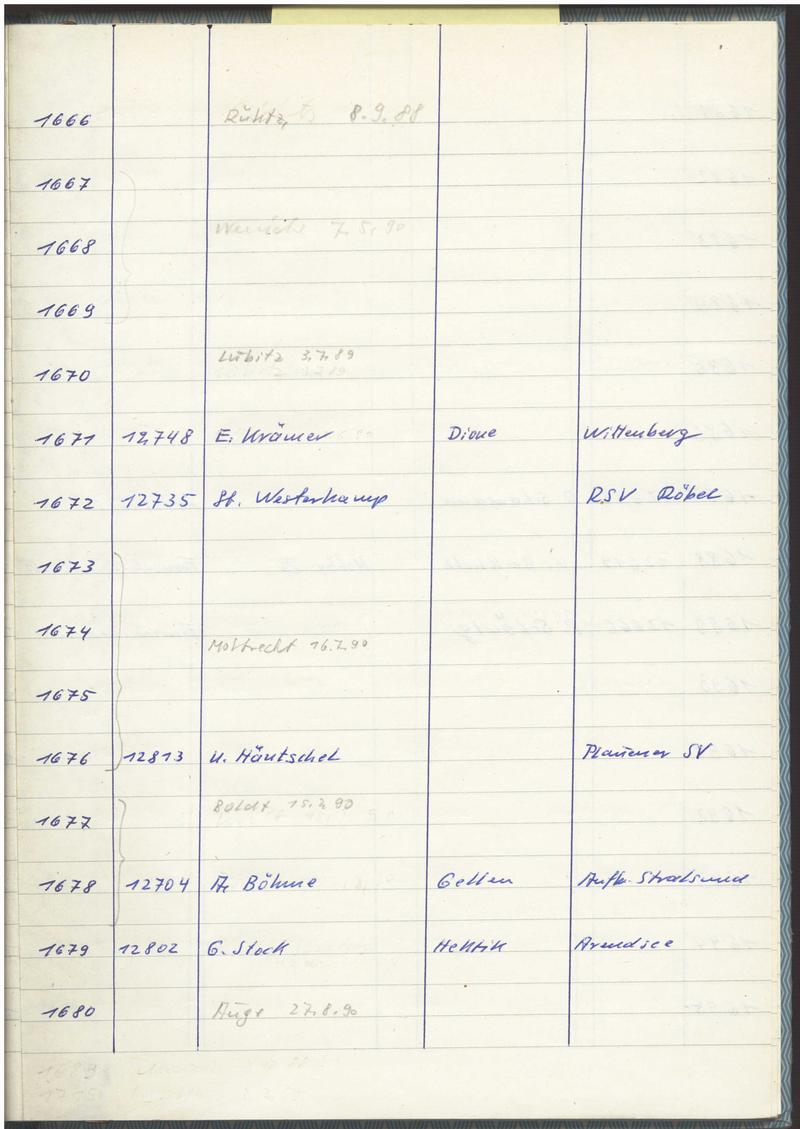 1666 Rühtz, 8.9.88
1667
1668 7.5.90
1669
Lubitz 3.7.89
1670
1671 12748 E. Krämer Dione Wittenberg
1672 12735 St. Westerkamp RSV Röbel
1673
1674 Moltrecht 16.7.90
1675
1676 12813 U. Häntschel Plauener SV
Boldt 15.2.90
1677
1678 12704 A. Böhme Gellen Aufb. Stralsund
1679 12802 G. Stock Hektik Arendsee
1680 Auge 27.8.90